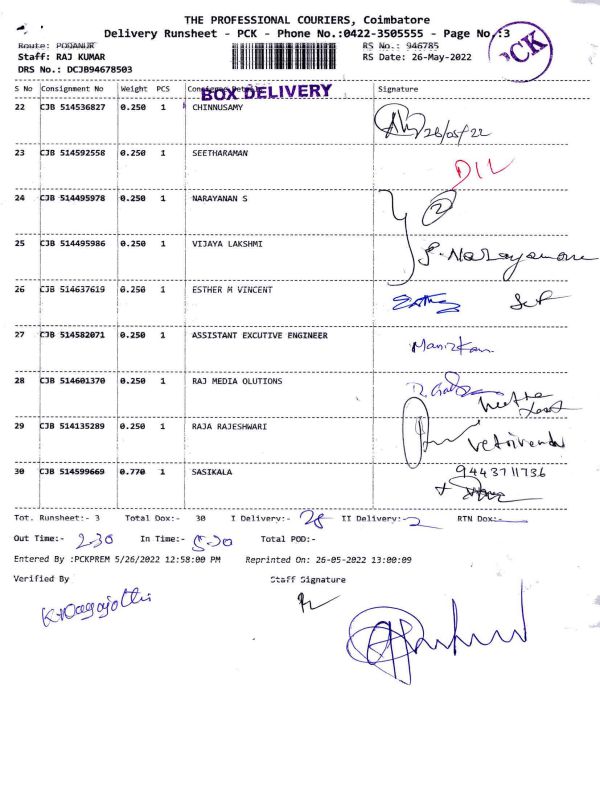 THE PROFESSIONAL COURIERS, Coimbatore
Delivery Runsheet - PCK - Phone No.:0422-3505555 - Page No.:3
PCK
Route: PODANUR RS No.: 946785
Staff: RAJ KUMAR RS Date: 26-May-2022
DRS No.: DCJB94678503
S No Consignment No Weight PCS Consignee Details Signature
BOX DELIVERY
22 CJB 514536827 0.250 1 CHINNUSAMY 26/05/22
23 CJB 514592558 0.250 1 SEETHARAMAN DIL
24 CJB 514495978 0.250 1 NARAYANAN S 2
25 CJB 514495986 0.250 1 VIJAYA LAKSHMI
26 CJB 514637619 0.250 1 ESTHER M VINCENT
27 CJB 514582071 0.250 1 ASSISTANT EXCUTIVE ENGINEER
28 CJB 514601370 0.250 1 RAJ MEDIA OLUTIONS
29 CJB 514135289 0.250 1 RAJA RAJESHWARI
30 CJB 514599669 0.770 1 SASIKALA 9443711736
Tot. Runsheet:- 3 Total Dox:- 30 I Delivery:- 28 II Delivery:- 2 RTN Dox:-
Out Time:- 2.30 In Time:- 5.20 Total POD:-
Entered By :PCKPREM 5/26/2022 12:58:00 PM Reprinted On: 26-05-2022 13:00:09
Verified By Staff Signature